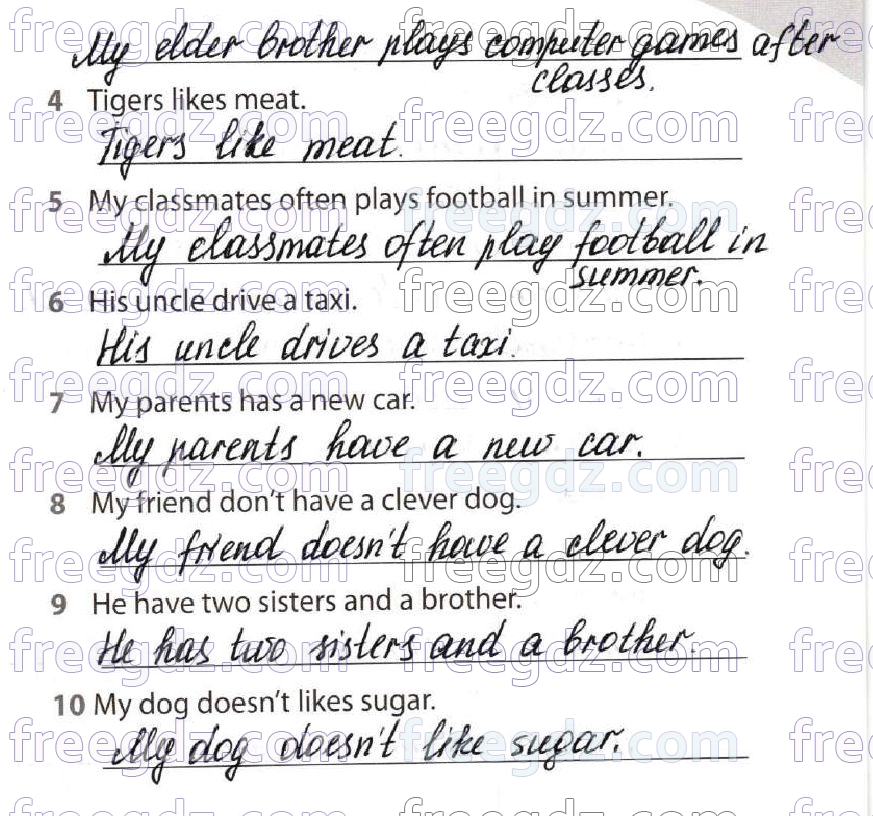 My elder brother plays computer games after
classes.
4 Tigers likes meat.
Tigers like meat.
5 My classmates often plays football in summer.
My classmates often play football in
summer.
6 His uncle drive a taxi.
His uncle drives a taxi.
7 My parents has a new car.
My parents have a new car.
8 My friend don't have a clever dog.
My friend doesn't have a clever dog.
9 He have two sisters and a brother.
He has two sisters and a brother.
10 My dog doesn't likes sugar.
My dog doesn't like sugar.
freegdz.com